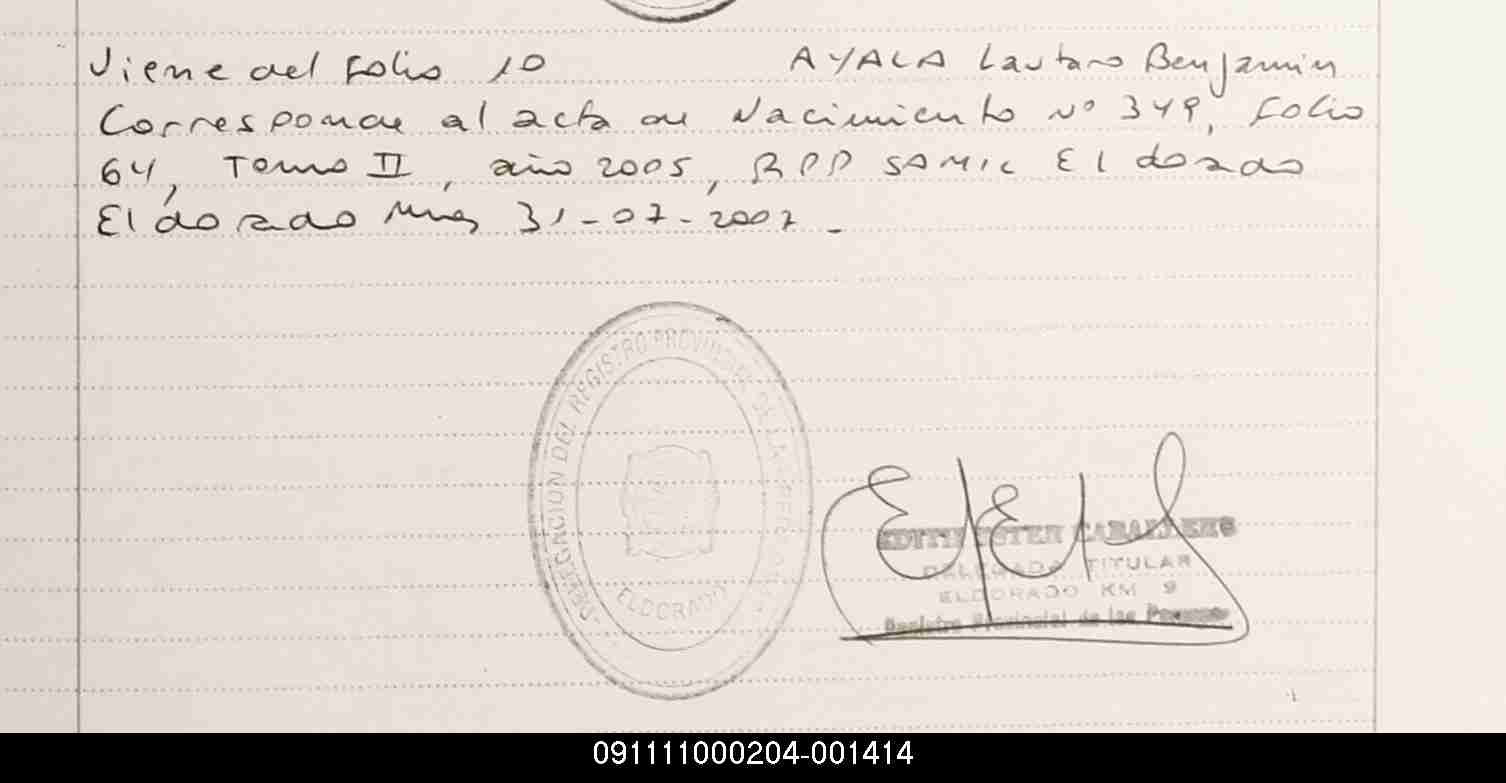 Viene del Folio 10 AYALA Lautaro Benjamin
Corresponde al acta de Nacimiento Nº 349, Folio
64, Tomo II, año 2005, RPP SAMIC Eldorado
Eldorado Mnes 31-07-2007.-
DELEGACION DEL REGISTRO PROVINCIAL DE LAS PERSONAS
ELDORADO
EDITH ESTER CABALLERO
DELEGADA TITULAR
ELDORADO KM 9
Registro Provincial de las Personas
091111000204-001414